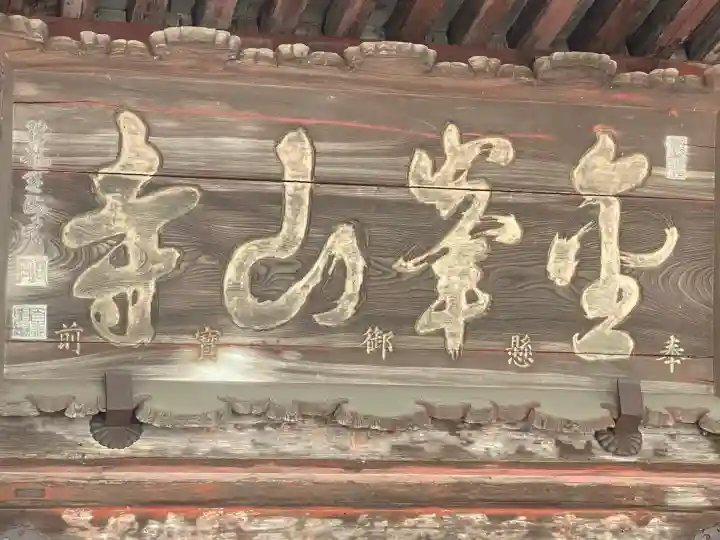 金峯山寺
奉懸御寶前